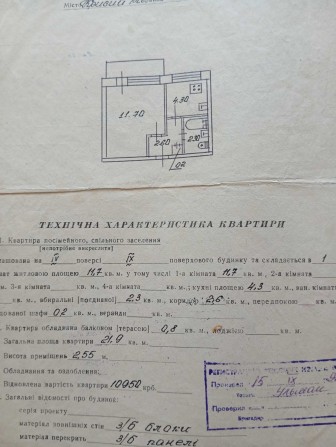 Міст
11.70
4.30
2.00
2.30
0.2
ТЕХНІЧНА ХАРАКТЕРИСТИКА КВАРТИРИ
1. Квартира посімейного, спільного заселення
(непотрібне викреслити)
ташована на IV поверсі IX поверхового будинку та складається з 1
нат житловою площею 11,7 кв. м, у тому числі 1-а кімната 11,7 кв. м, 2-а кімната
кв. м, 3-я кімната кв. м, 4-а кімната кв. м; кухні площею 4,3 кв. м, кімнати
кв. м, вбиральні [поєднаної] 2,3 кв. м, коридору 2,6 кв. м, передпокою кв. м,
шафи 0,2 кв. м, веранди кв. м.
Квартира обладнана балконом [терасою] 0,8 кв. м, кв. м.
Загальна площа квартири 21.9 кв. м.
Висота приміщень 2,55 м.
Обладнання та оздоблення:
Відновлена вартість квартири 10950 крб.
Загальні відомості про будинок:
серія проекту
матеріал зовнішніх стін з/б блоки
матеріал перекриття з/б панелі
15 IX
Перевірив
Бригадир